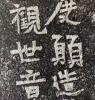 願造
觀世音